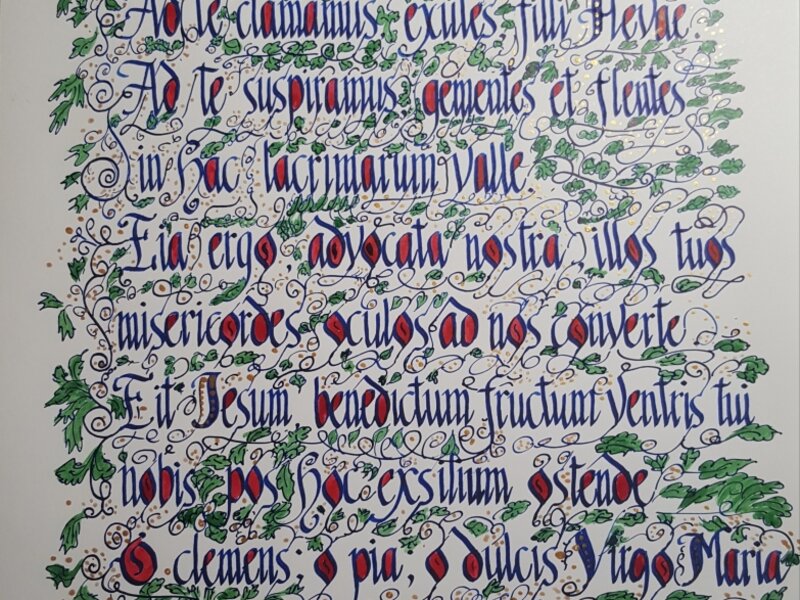 Ad te clamamus exules filii Hevae.
Ad te suspiramus, gementes et flentes
in hac lacrimarum valle.
Eia ergo, advocata nostra, illos tuos
misericordes oculos ad nos converte
Et Jesum benedictum fructum ventris tui
nobis pos hoc exsilium ostende
O clemens, o pia, o dulcis Virgo Maria